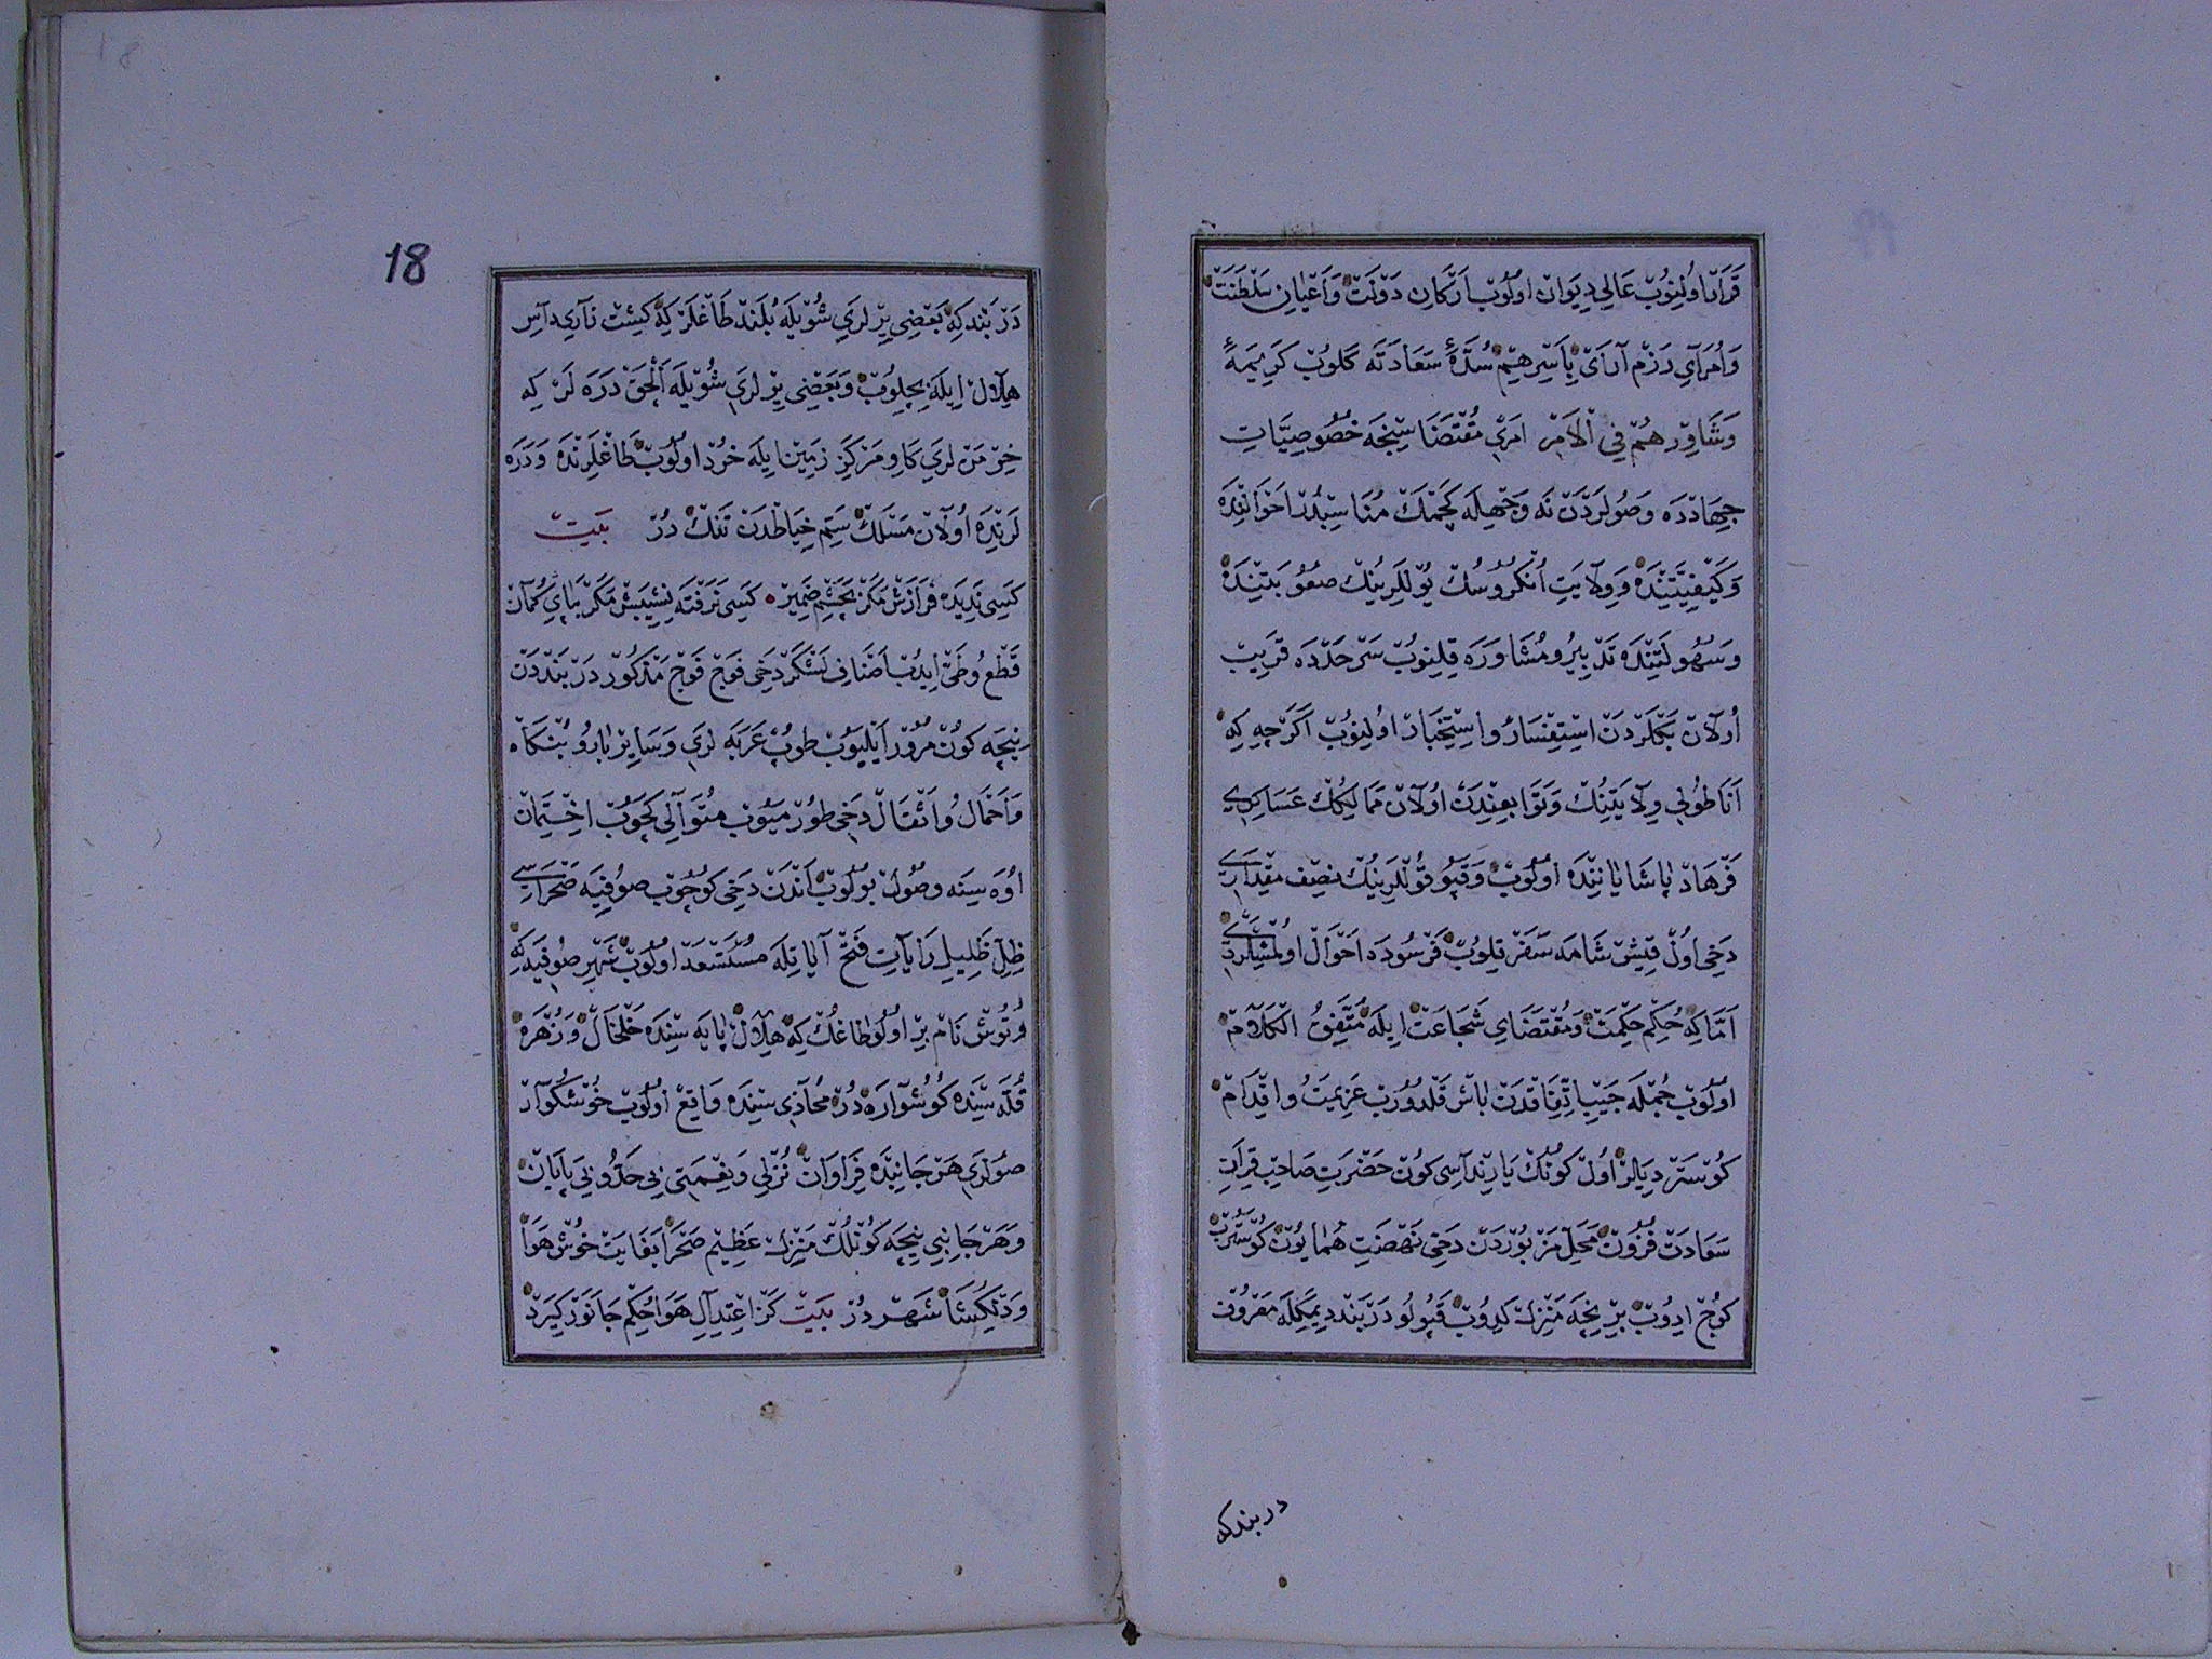 قَرَارْ اُولِنُوبْ عَالِي دِيوَانْ اولُوبْ اَرْكَانِ دَوْلَتْ وَاَعْيَانِ سَلْطَنَتْ
وَاُمَرَآيِ رَزْم آرَايْ بِاَسِرِهِمْ سُدَّهٔ سَعَادَتَه كَلُوبْ كَرِيمَهٔ
وَشَاوِرْهُمْ فِي الْاَمْرِ اَمرِي مُقْتَضَاسِنجَه خُصُوصِيَّاتِ
جِهَادْدَه وَصُولَرْدَنْ نَه وَجْهِلَه كَچْمَكْ مُنَاسِبْدُرْ اَحْوَالِنْدَه
وَكَيْفِيَّتِنْدَه وَوِلَايَتِ اُنْكُرُوسُكْ يُوللَرِينُكْ صُعُوبَتِنْدَه
وَسُهُولَتِنْدَه تَدْبِيرُ ومُشَاوَرَه قِلِنُوبْ سَرْحَدَّدَه قَرِيبْ
اُولَانْ بَكْلَرْدَنْ اسْتِفْسَارْ واِسْتِخْبَارْ اولِنُوبْ اَكَرْچِه كِه
اَنَاطُولِي وِلَايَتِنُكْ وَتَوَابِعِنْدَنْ اُولَانْ مَمَالِيكُكْ عَسَاكِرِي
فَرْهَادْ پَاشَا يَانِنْدَه اولُوبْ وَقَپُو قُولْلَرِينُكْ نِصِف مِقْدَارِي
دَخِي اُولْ قِيشْ شَامَه سَفَرْ قِلُوبْ فَرْسُودَه اَحْوَالْ اولْمِشْلَرْدِي
اَمَّا كِه حُكْمِ حِكْمَتْ وَمُقْتَضَايِ شَجَاعَتْ اِيلَه مُتَّفِقُ الْكَلَامْ
اولُوبْ جُمْلَه جَيْبِ اِتِّفَاقْدَنْ بَاشْ قَلْدُورُبْ عَزِيمَتْ وُاقْدَامْ
كُوسْتَرْدِيلَرْ اُولْ كُونُكْ يَارِنْدَاسِي كُونْ حَضْرَتِ صَاحِبْ قِرَانِ
سَعَادَتْ فُزُونْ مَحَلِّ مَزْبُورْدَنْ دَخِي نَهْضَتِ هُمَايُونْ كُوسْتَرُبْ
كُوچْ ايدُوبْ بِرْنِچَه مَنْزِلْ كِيدُوبْ قَپُولُو دَرْبَنْد دِيمَكْلَه مَعْرُوفْ
دربندكه
18
دَرْبَنْدكِه بَعْضِي يِرْلَرِي شُويْلَه بُلَنْد طَاغْلَرْ كِه كِشْتِ زَارِي دَاسِ
هِلَالْ اِيلَه بِچِلُوبْ وَبَعْضِي يِرْلَرِي شُويْلَه اَلْچَقْ دَرَه لَرْ كِه
خِرْمَنْ لَرِي كَاوِ مَرْكَزِ زَمِينْ ايلَه خُرْد اولُوبْ طَاغْلَرِنْدَه وَدَرَه
لَرِنْدَه اُولَانْ مَسْلَكْ سَمِّ خِيَاطْدَنْ تَنْكْ دُرْ بَيتْ
كَسِي نَدِيدَه فَرَازَشْ مَكَرْ بَچَشْمِ ضَمِيرْ كَسِي نَرَفْتَه نَشِيبَشْ مَكَرْ بَپَايِ كُمَانْ
قَطْعُ وُطَيّ اِيدُبْ اَصْنَافِ لَشْكَرْ دَخِي فَوْج فَوْج مَذْكُورْ دَرْبَنْددَنْ
نِيچَه كُونْ مُرُورْ اَيْلِيُوبْ طُوپْ عَرَبَه لَرِي وَسَايِرْ بَارُو بُنْكَاه
وَاَحْمَالُ وُاَثْقَالْ دَخِي طُورْمَيُوبْ مُتَوَالِي كَچُوبْ اخْتِيمَانْ
اُوَه سِينَه وصُولْ بُولُوبْ اَنْدَنْ دَخِي كُوچُوبْ صُوفِيَه صَحْرَاسِي
ظِلِّ ظَلِيلِ رَايَاتِ فَتْح آيَاتِلَه مُسْتَسْعَدْ اولُوبْ شَهْرِ صُوفِيَه كِه
وِتُوشْ نَامْ بِرْ اُولُو طَاغُكْ كِه هِلَالْ پَايَه سِنْدَه خَلْخَالْ وَزُهْرَه
قُلَّه سِنْدَه كُوشْوَارَه دُرْ مُحَاذِي سِنْدَه وَاقِعْ اُولُوبْ خُوشْكُوَارْ
صُولَرِي هَرْ جَانِبْدَه فِرَاوَانْ نُزْلِي وَنِعْمَتِي بِي حَدُّ وبِي پَايَانْ
وَهَرْ جَانِبِي نِيچَه كُونْلُكْ مَنْزِلْ عَظِيمْ صَحْرَا بَغَايَتْ خُوشْ هَوَا
وَدِلْكُشَا شَهْر دُرْ بَيتْ كَزْ اعْتِدَالِ هَوَا حُكْمِ جَانَوَرْ كِيرَدْ